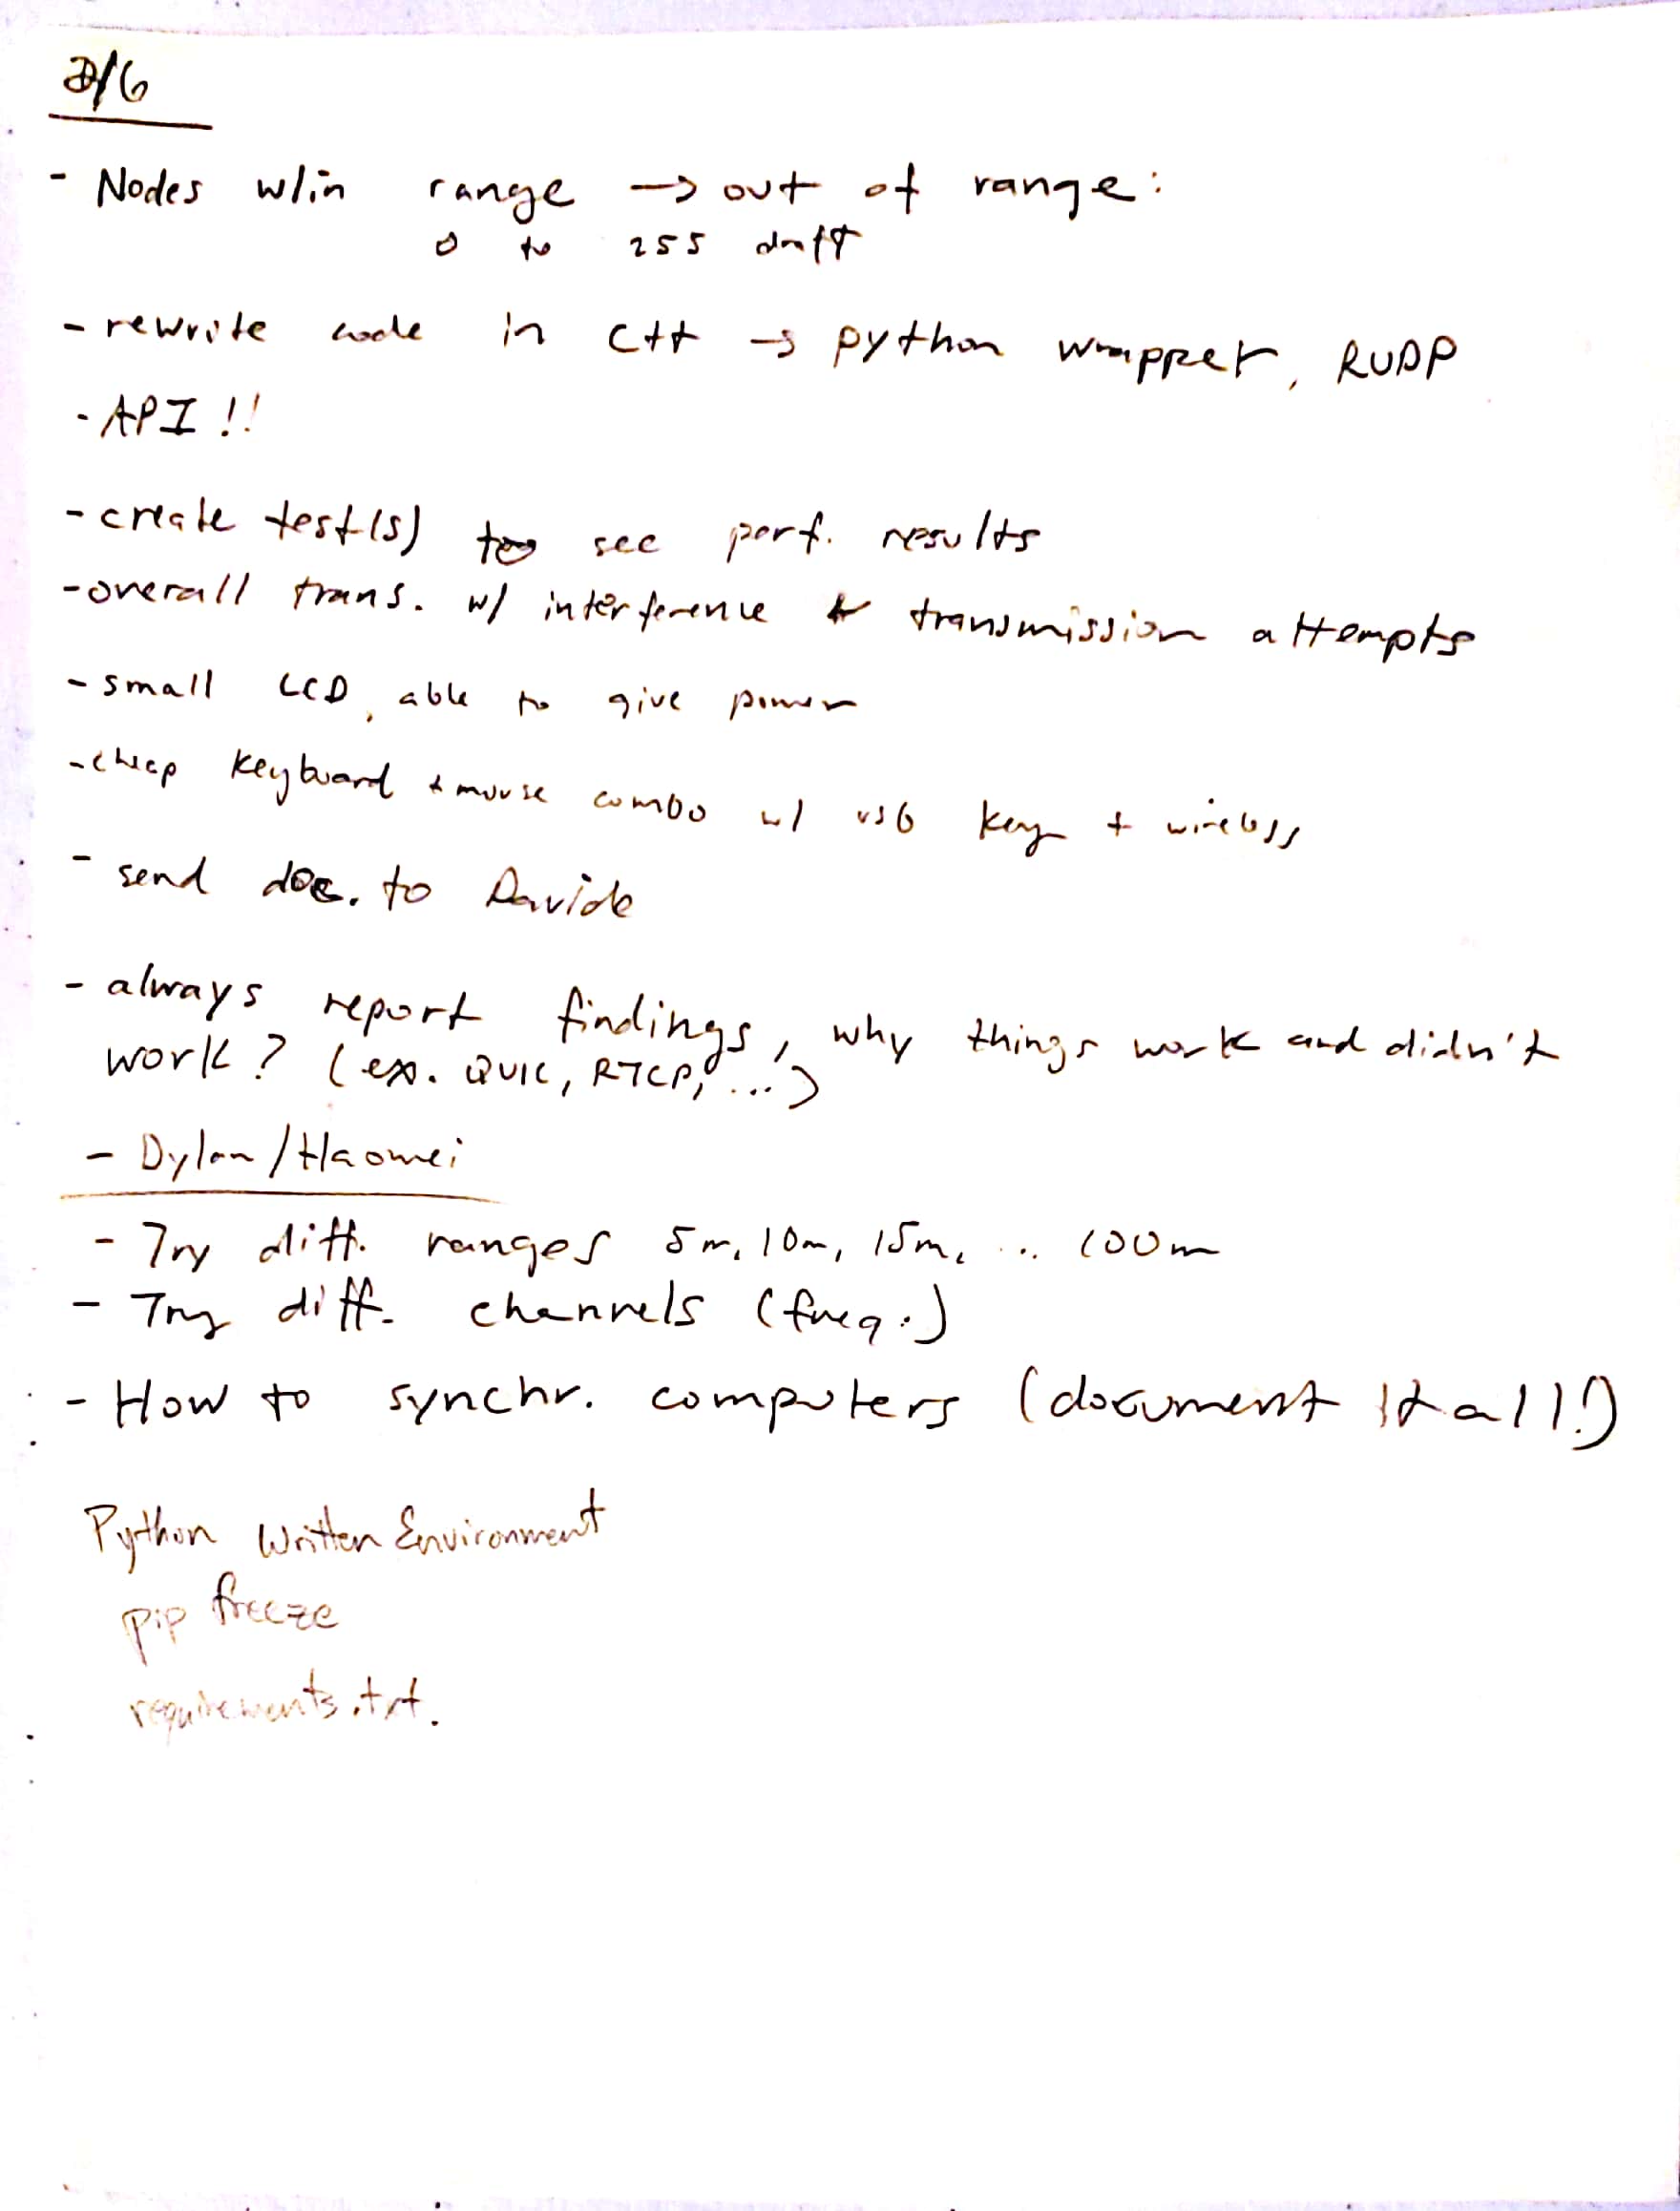 2/6
- Nodes w/in range → out of range:
0 to 255 draft
- rewrite code in C++ → python wrapper, RUDP
- API !!
- create test(s) to see perf. results
- overall trans. w/ interference & transmission attempts
- small LCD, able to give power
- cheap keyboard + mouse combo w/ usb key + wireless
- send doc. to Davide
- always report findings, why things work and didn't
work? (ex. QUIC, RTCP, ...)
- Dylan/Haomei
- Try diff. ranges 5m, 10m, 15m, ... 100m
- Try diff. channels (freq.)
- How to synchr. computers (document it all!)
Python Written Environment
pip freeze
requirements.txt.